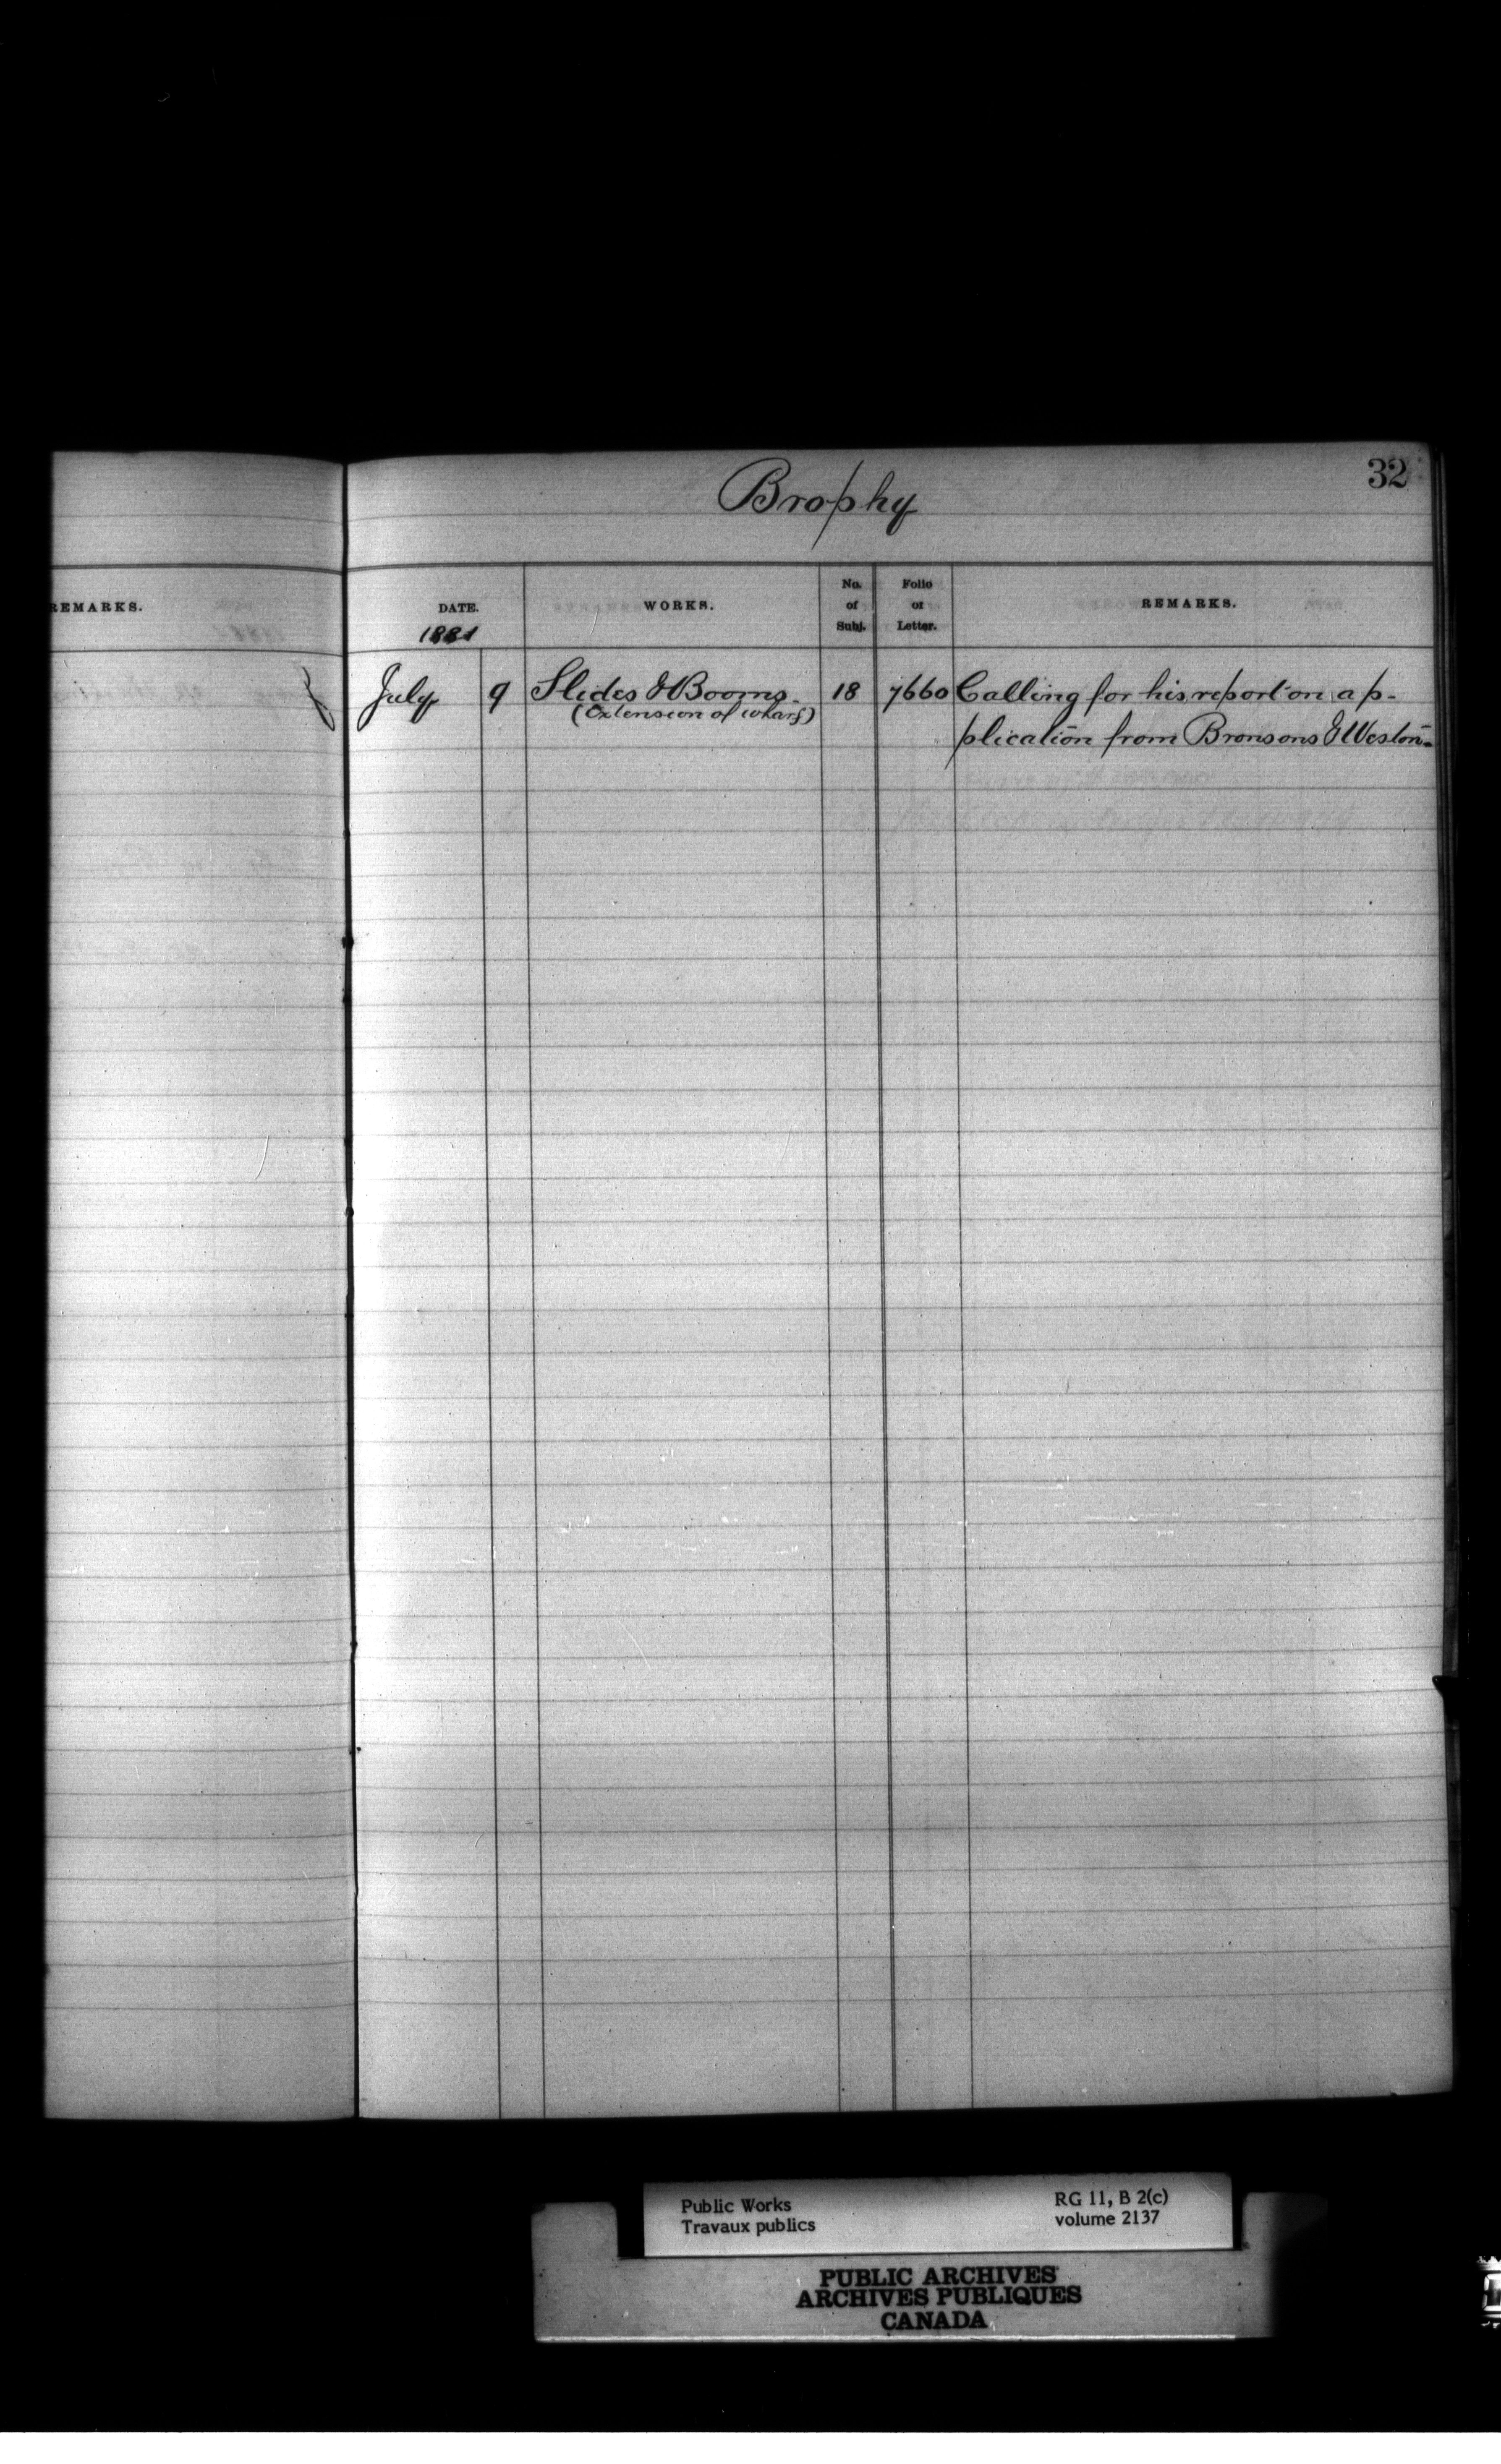 32
Brophy
REMARKS.
DATE. WORKS. No. of Subj. Folio of Letter. REMARKS.
1881
July 9 Slides & Booms. 18 7660 Calling for his report on ap-
(Extension of wharf)
plication from Bronsons & Weston.
Public Works RG 11, B 2(c)
Travaux publics volume 2137
PUBLIC ARCHIVES
ARCHIVES PUBLIQUES
CANADA